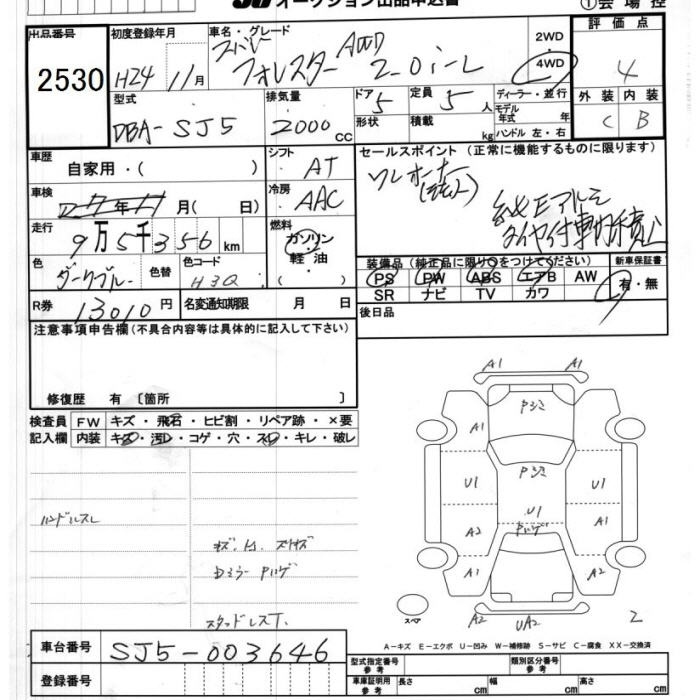 オークション出品申込書 ①会場控
出品番号 初度登録年月 車名・グレード 2WD 評価点
2530 H24 11月 スバル フォレスター AWD 2.0i-L 4WD 4
型式 排気量 ドア 定員 ディーラー・並行 外装 内装
DBA-SJ5 2000cc 5 5人 モデル年式 年 C B
形状 積載 kg ハンドル 左・右
車歴 シフト セールスポイント (正常に機能するものに限ります)
自家用・( ) AT ワンオーナー
車検 冷房
年 月( 日) AAC
走行 燃料
9万5千356km ガソリン・軽油・( ) タイヤ付車内積込
色 色替 色コード 装備品(純正品に限り○をつけてください) 新車保証書
ダークブルー H3Q PS PW ABS エアB AW 有・無
SR ナビ TV カワ
R券 13010円 名変通知期限 月 日 後日品
注意事項申告欄(不具合内容等は具体的に記入して下さい)
修復歴 有〔箇所 〕
検査員 FW キズ・飛石・ヒビ割・リペア跡・×要
記入欄 内装 キズ・汚レ・コゲ・穴・スレ・キレ・破レ
ハンドルスレ
スタッドレスT.
A1 A1
A1
U1 U1
U1
A2 A1
A1 A2
スペア A2 UA2 2
A-キズ E-エクボ U-凹み W-補修跡 S-サビ C-腐食 XX-交換済
車台番号 SJ5-003646
型式指定番号 参考 類別区分番号 参考
登録番号
車庫証明用 参考 長さ cm 幅 cm 高さ cm